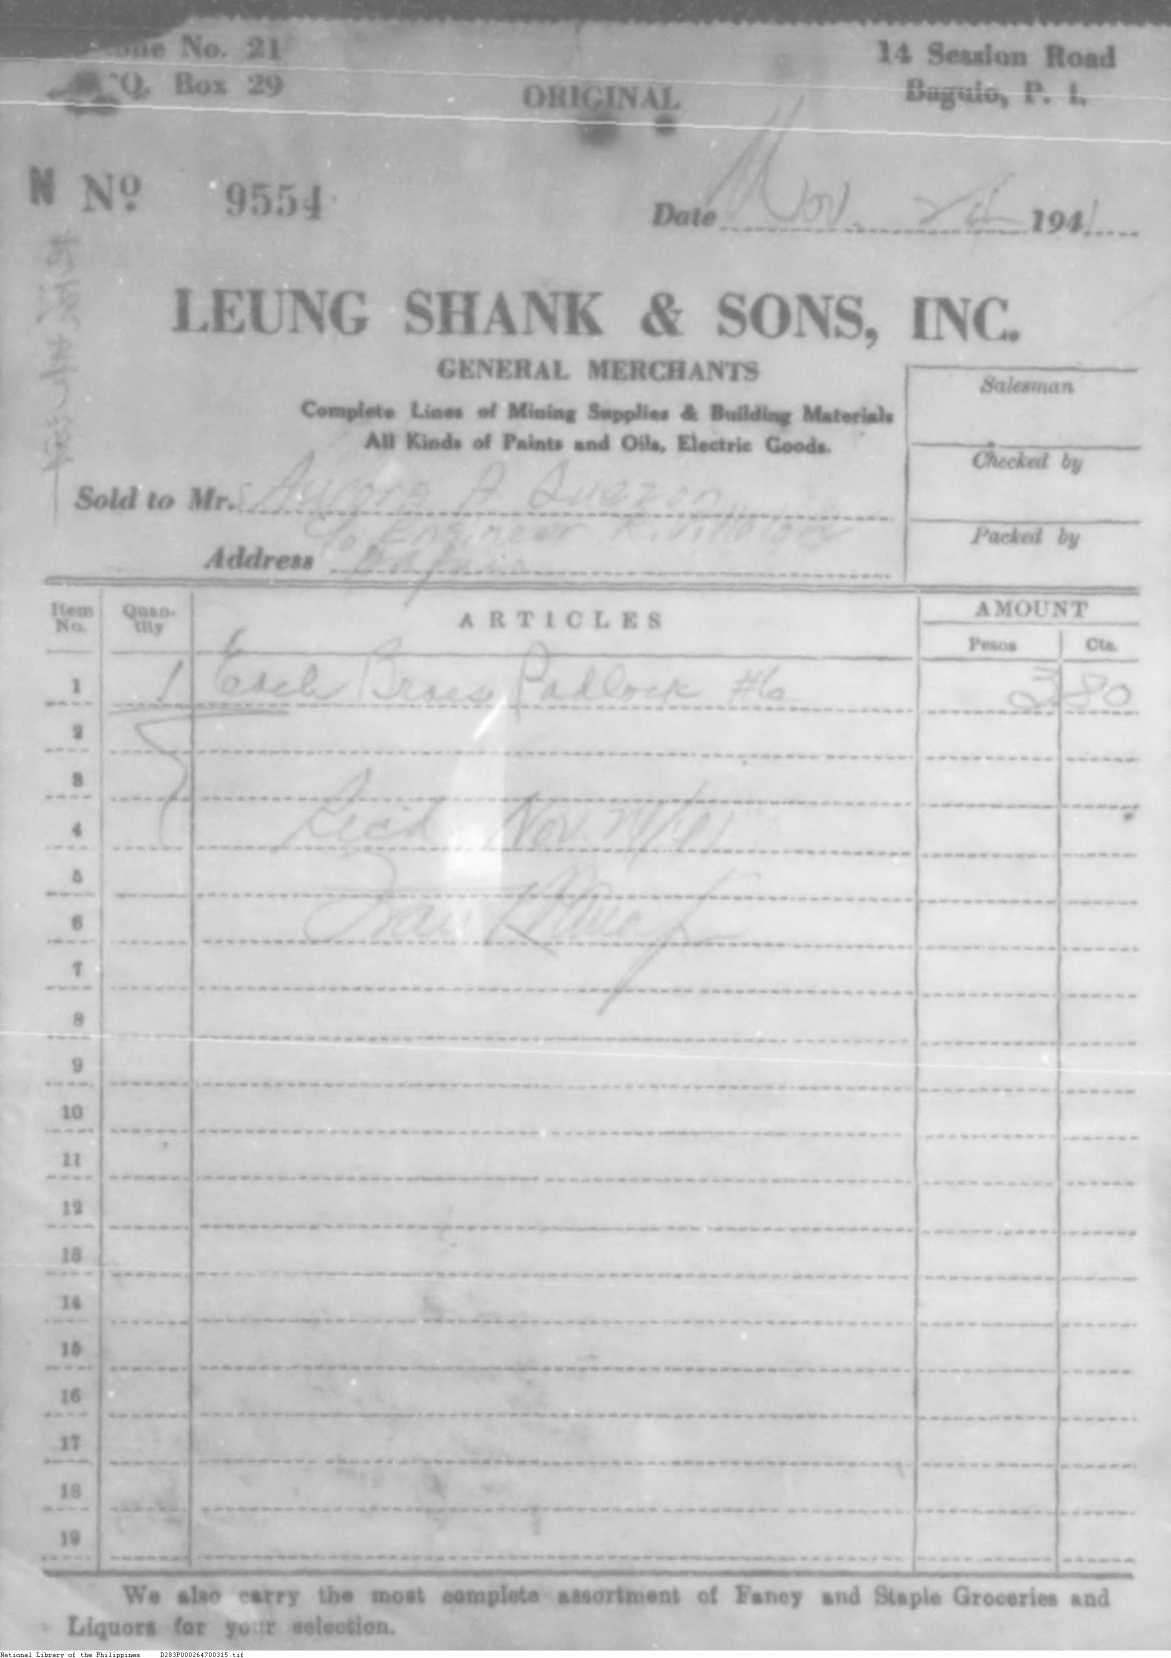 one No. 21
14 Session Road
O. Box 29
ORIGINAL
Baguio, P. I.
N Nº 9554
Date Nov. 1941
LEUNG SHANK & SONS, INC.
GENERAL MERCHANTS
Complete Lines of Mining Supplies & Building Materials
All Kinds of Paints and Oils, Electric Goods.
Salesman
Checked by
Packed by
Sold to Mrs. Aurora A Quezon
c/o Engineer R.
Address
Item No.
Quan-tity
ARTICLES
AMOUNT
Pesos
Cts.
1 1 Each Brass Padlock #6 3 80
2
3
4 Rec'd Nov.
5
6
7
8
9
10
11
12
13
14
15
16
17
18
19
We also carry the most complete assortment of Fancy and Staple Groceries and
Liquors for your selection.
National Library of the Philippines D283P000264700315.tif